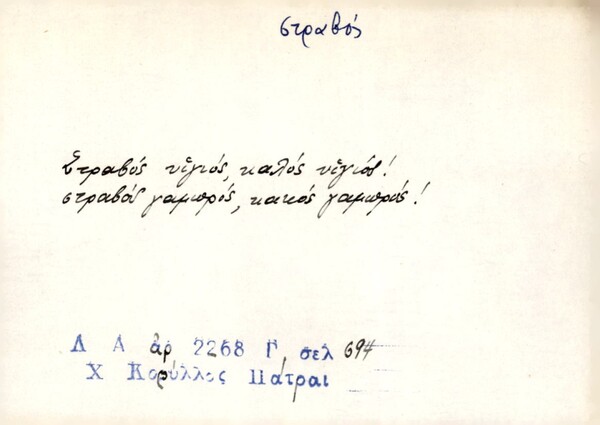 στραβός
Στραβός υἱγιός, καλός υἱγιός!
στραβός γαμπρός, κακός γαμπρός!
Λ Α ἀρ 2268 Γ, σελ 694
Χ Κορύλλος Πάτραι